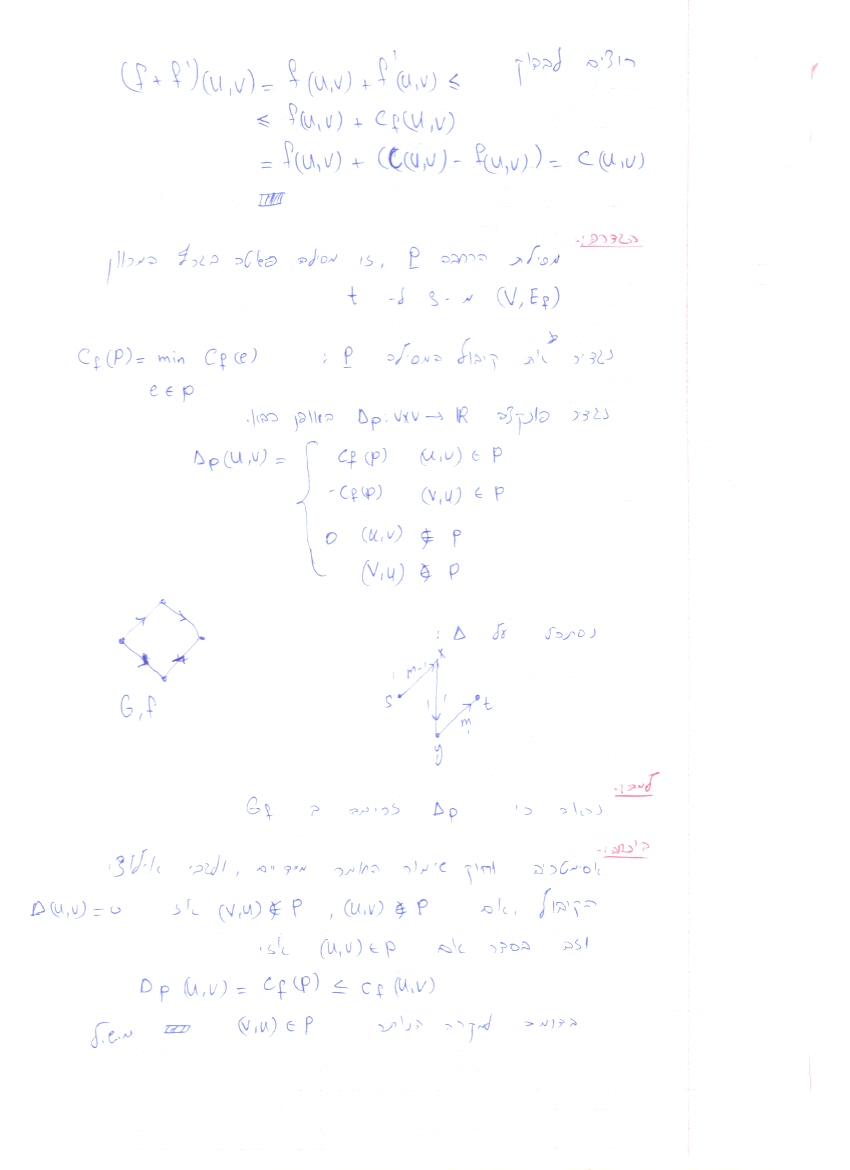 רוצים לבדוק (f + f')(u,v) = f(u,v) + f'(u,v) ≤
≤ f(u,v) + Cf(u,v)
= f(u,v) + (C(u,v) - f(u,v)) = C(u,v)
הגדרה:
מסילת הרחבה P, זו מסילה פשוטה בגרף המכוון
(V, Ef) מ-S ל-t
נגדיר את קיבול המסילה P : Cf(P) = min Cf(e)
e∈p
נגדר פונקציה Δp: V×V → ℝ באופן הבא.
Δp(u,v) = { Cf(p) (u,v) ∈ P
-Cf(P) (v,u) ∈ P
0 (u,v) ∉ P
(v,u) ∉ P
נסתכל על Δ :
x
m-1
S t
1
m
y
G,f
למה:
נראה כי Δp זרימה ב Gf
הוכחה:
אסימטריה וחוק שימור החומר מידיים, ולגבי אילוצי
הקיבול, אם (u,v) ∉ P, (v,u) ∉ P אז Δ(u,v) = 0
וזה בסדר אם (u,v) ∈ P אזי
Δp(u,v) = Cf(P) ≤ Cf(u,v)
בדומה למקרה הנותר (v,u) ∈ P מ.ש.ל